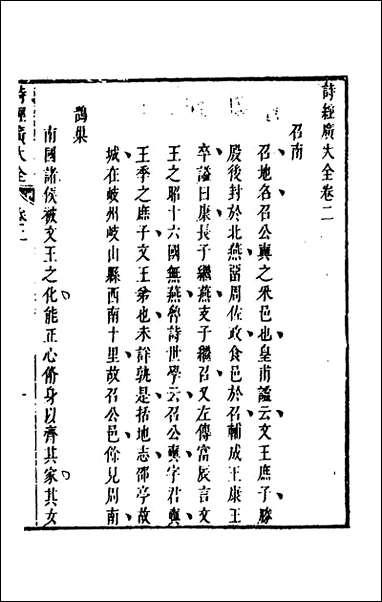 詩經廣大全卷二
召南
召地名召公奭之采邑也皇甫謐云文王庶子勝
殷後封於北燕畱周佐政食邑於召輔成王康王
卒謚曰康長子繼燕支子繼召又左傳富辰言文
王之昭十六國無燕魯詩世學云召公奭字君奭
王季之庶子文王弟也未詳孰是括地志邵亭故
城在岐州岐山縣西南十里故召公邑餘見周南
鵲巢
南國諸侯被文王之化能正心脩身以齊其家其女
詩經廣大全 卷二